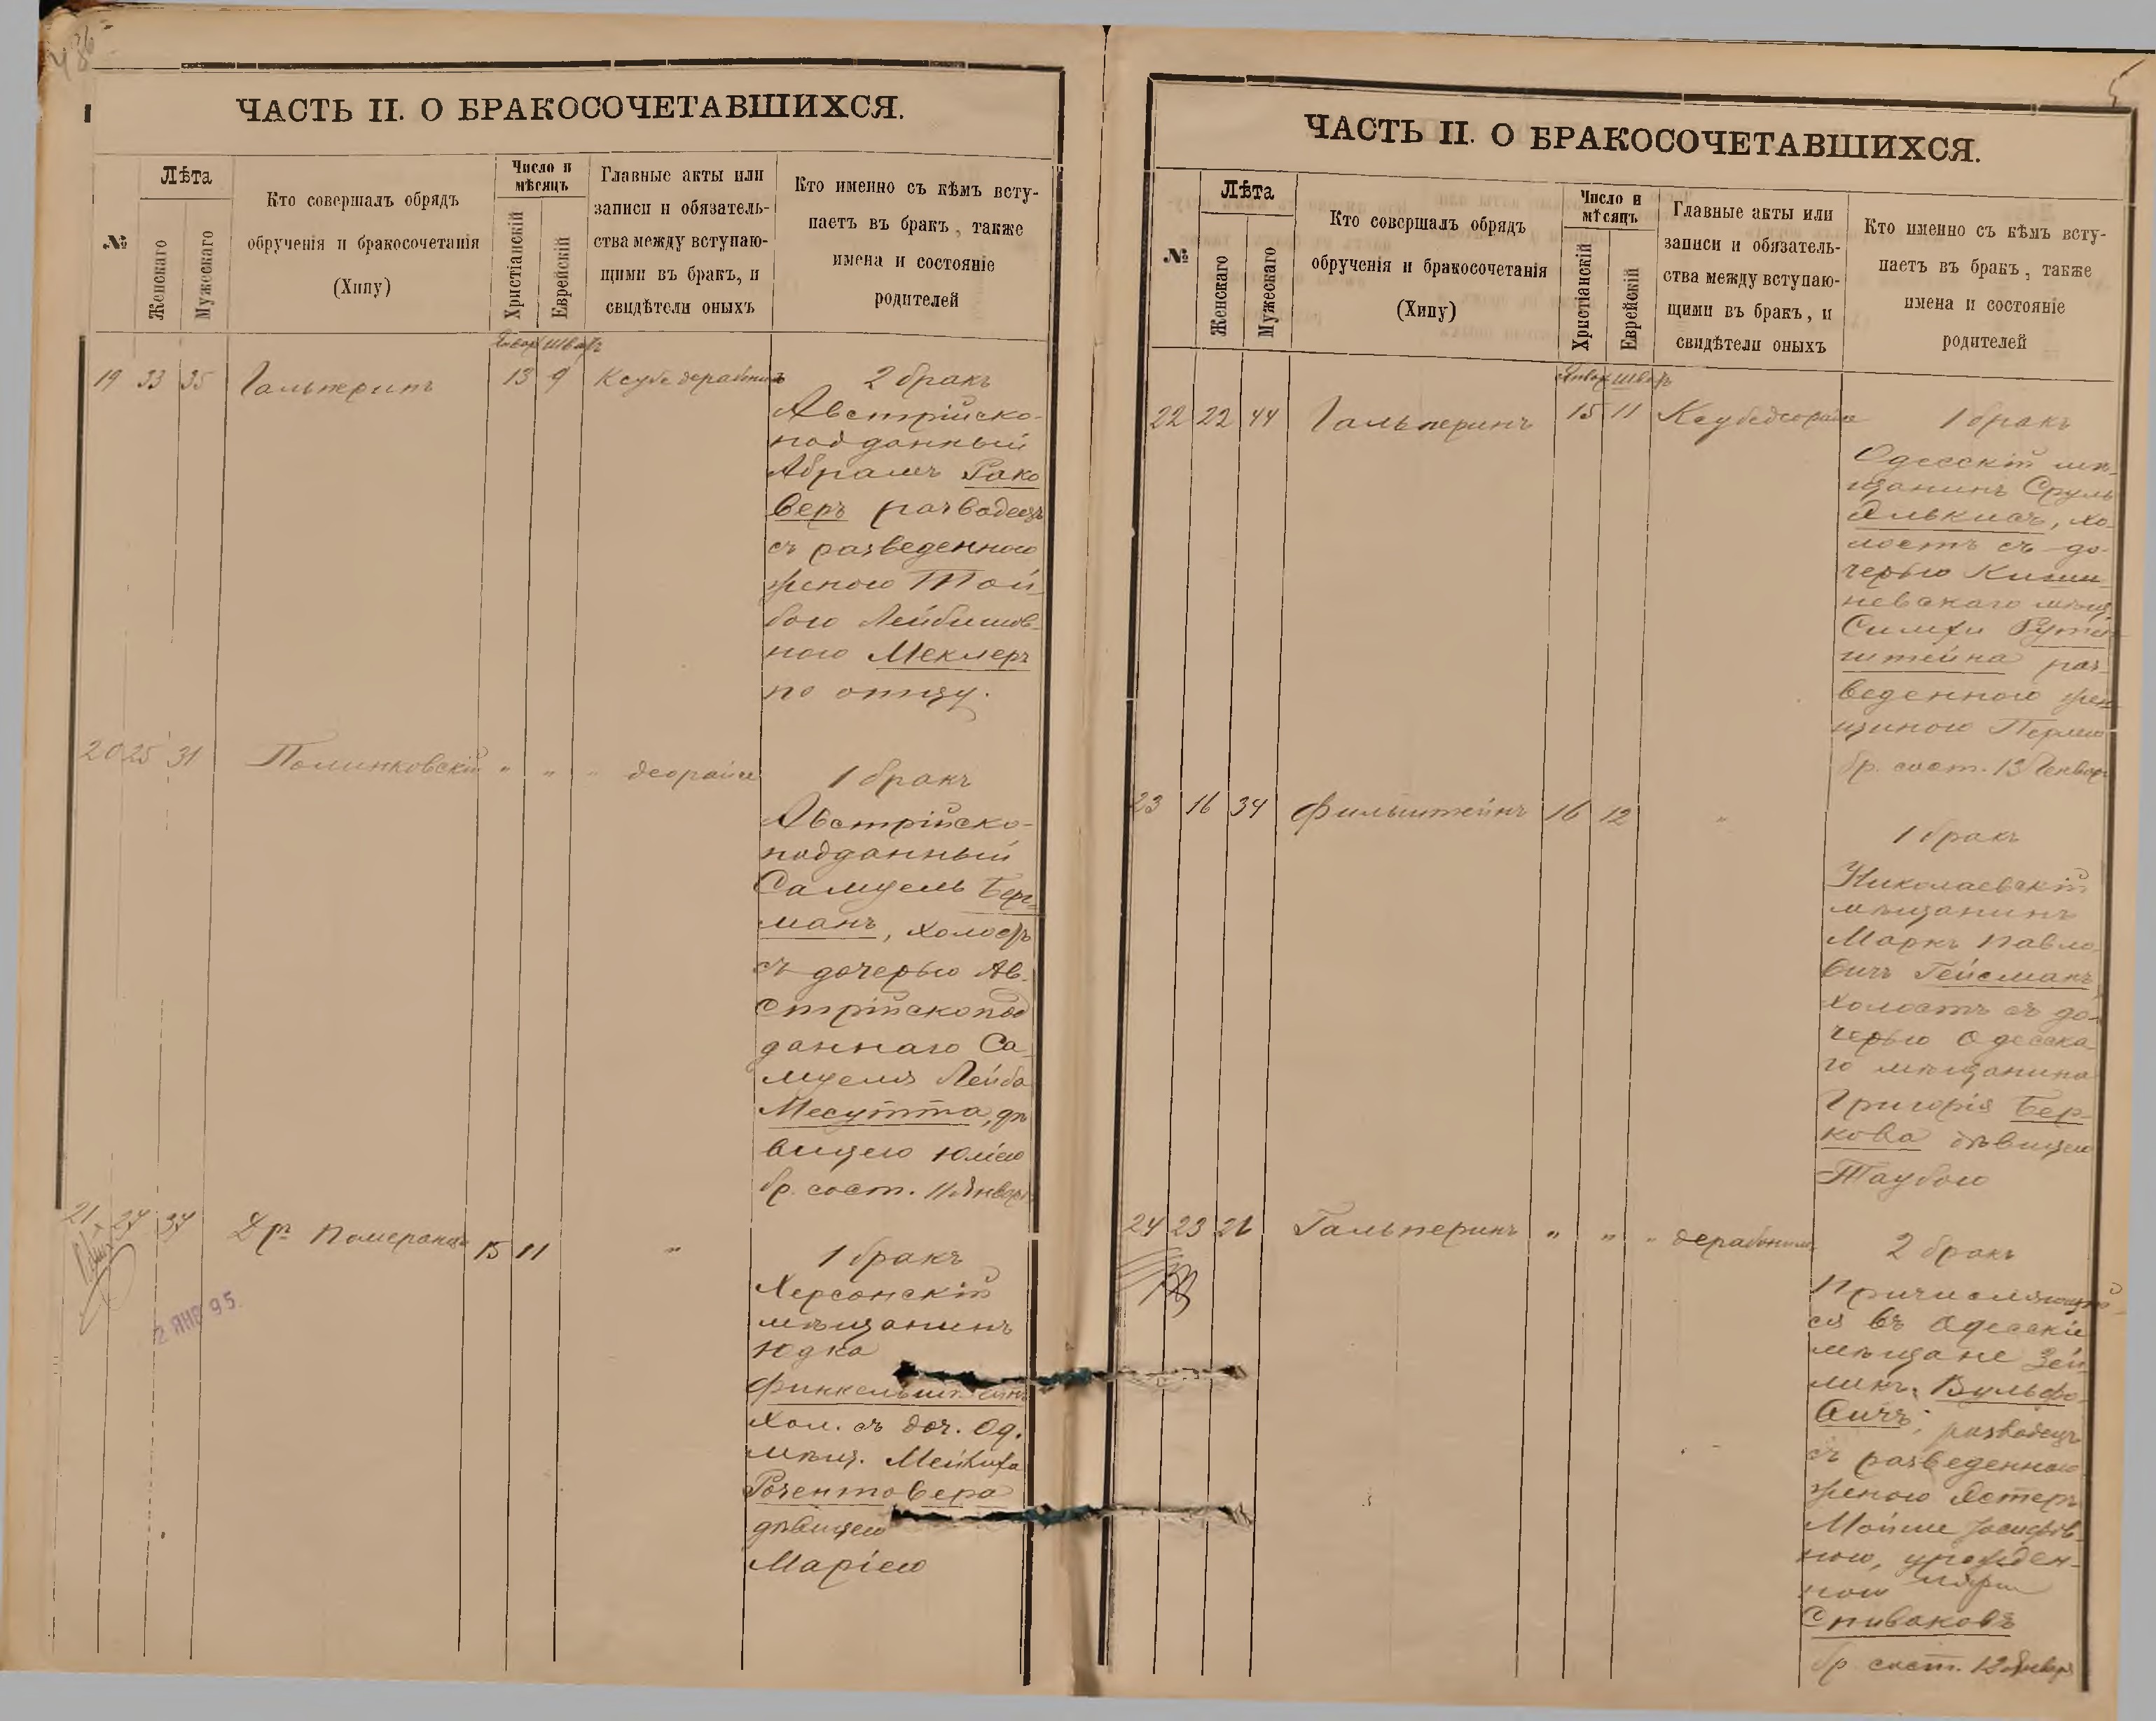 436
ЧАСТЬ II. О БРАКОСОЧЕТАВШИХСЯ.
№
Лѣта
Женскаго
Мужескаго
Кто совершалъ обрядъ
обрученія и бракосочетанія
(Хипу)
Число и
мѣсяцъ
Христіанскій
Еврейскій
Главные акты или
записи и обязатель-
ства между вступаю-
щими въ бракъ, и
свидѣтели оныхъ
Кто именно съ кѣмъ всту-
паетъ въ бракъ, также
имена и состояніе
родителей
Январ Шватъ
19 33 35 Гальперинъ 13 9 Ксубе дерабонимъ 2 бракъ
Австрійско-
подданный
Абрамъ Рако
веръ разводецъ
съ разведенною
женою Той
бою Лейбишов-
ною Меклеръ
по отцу.
20 25 31 Полинковскій " " " деорайсе 1 бракъ
Австрійско-
подданный
Самуель Берг-
манъ, холостъ
съ дочерью Ав-
стрійскопод
даннаго Са-
муеля Лейба
Месутта, дѣ
вицею Юліею
бр. сост. 11 Января
21 27 37 Дръ Померанцъ 15 11 " 1 бракъ
2 ЯНВ 95.
Херсонскій
мѣщанинъ
Юдка
Финкельштейнъ
хол. съ доч. Од.
мѣщ. Мейлиха
Розентовера
дѣвицею
Маріею
5
ЧАСТЬ II. О БРАКОСОЧЕТАВШИХСЯ.
№
Лѣта
Женскаго
Мужескаго
Кто совершалъ обрядъ
обрученія и бракосочетанія
(Хипу)
Число и
мѣсяцъ
Христіанскій
Еврейскій
Главные акты или
записи и обязатель-
ства между вступаю-
щими въ бракъ, и
свидѣтели оныхъ
Кто именно съ кѣмъ всту-
паетъ въ бракъ, также
имена и состояніе
родителей
Январ Шватъ
22 22 44 Гальперинъ 15 11 Ксубедеорайсе 1 бракъ
Одесскій мѣ-
щанинъ Сруль
Элькисъ, хо-
лостъ съ до-
черью Киши-
невскаго мѣщ.
Симхи Гутен
штейна раз-
веденною жен
щиною Перлею
бр. сост. 13 Январ
23 16 34 Фильштейнъ 16 12 " 1 бракъ
Николаевскій
мѣщанинъ
Маркъ Павло-
вичъ Гейсманъ,
холостъ съ до-
черью Одесска-
го мѣщанина
Григорія Бер-
кова дѣвицею
Таубою
24 23 26 Гальперинъ " " " дерабонимъ 2 бракъ
Причисляющій-
ся въ Одесскіе
мѣщане Зей-
ликъ Вульфо-
вичъ, разводецъ
съ разведенною
женою Эстеръ
Мойше Іосифов-
ною, урожден-
ною
Спиваковъ
бр. сост. 12 Января